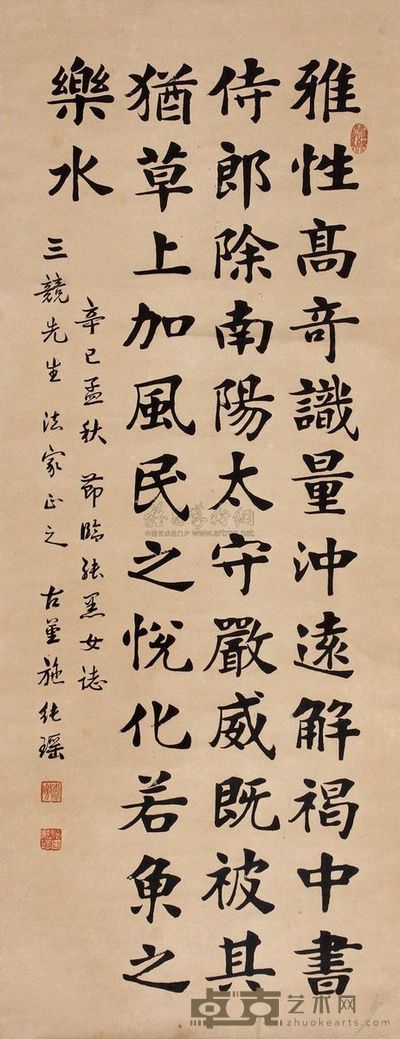 雅性高奇識量沖遠解褐中書
侍郎除南陽太守嚴威既被其
猶草上加風民之悅化若魚之
樂水
辛巳孟秋 節臨張黑女誌
三競先生法家正之 古堇施純瑤
卓克艺术网
zhuokearts.com